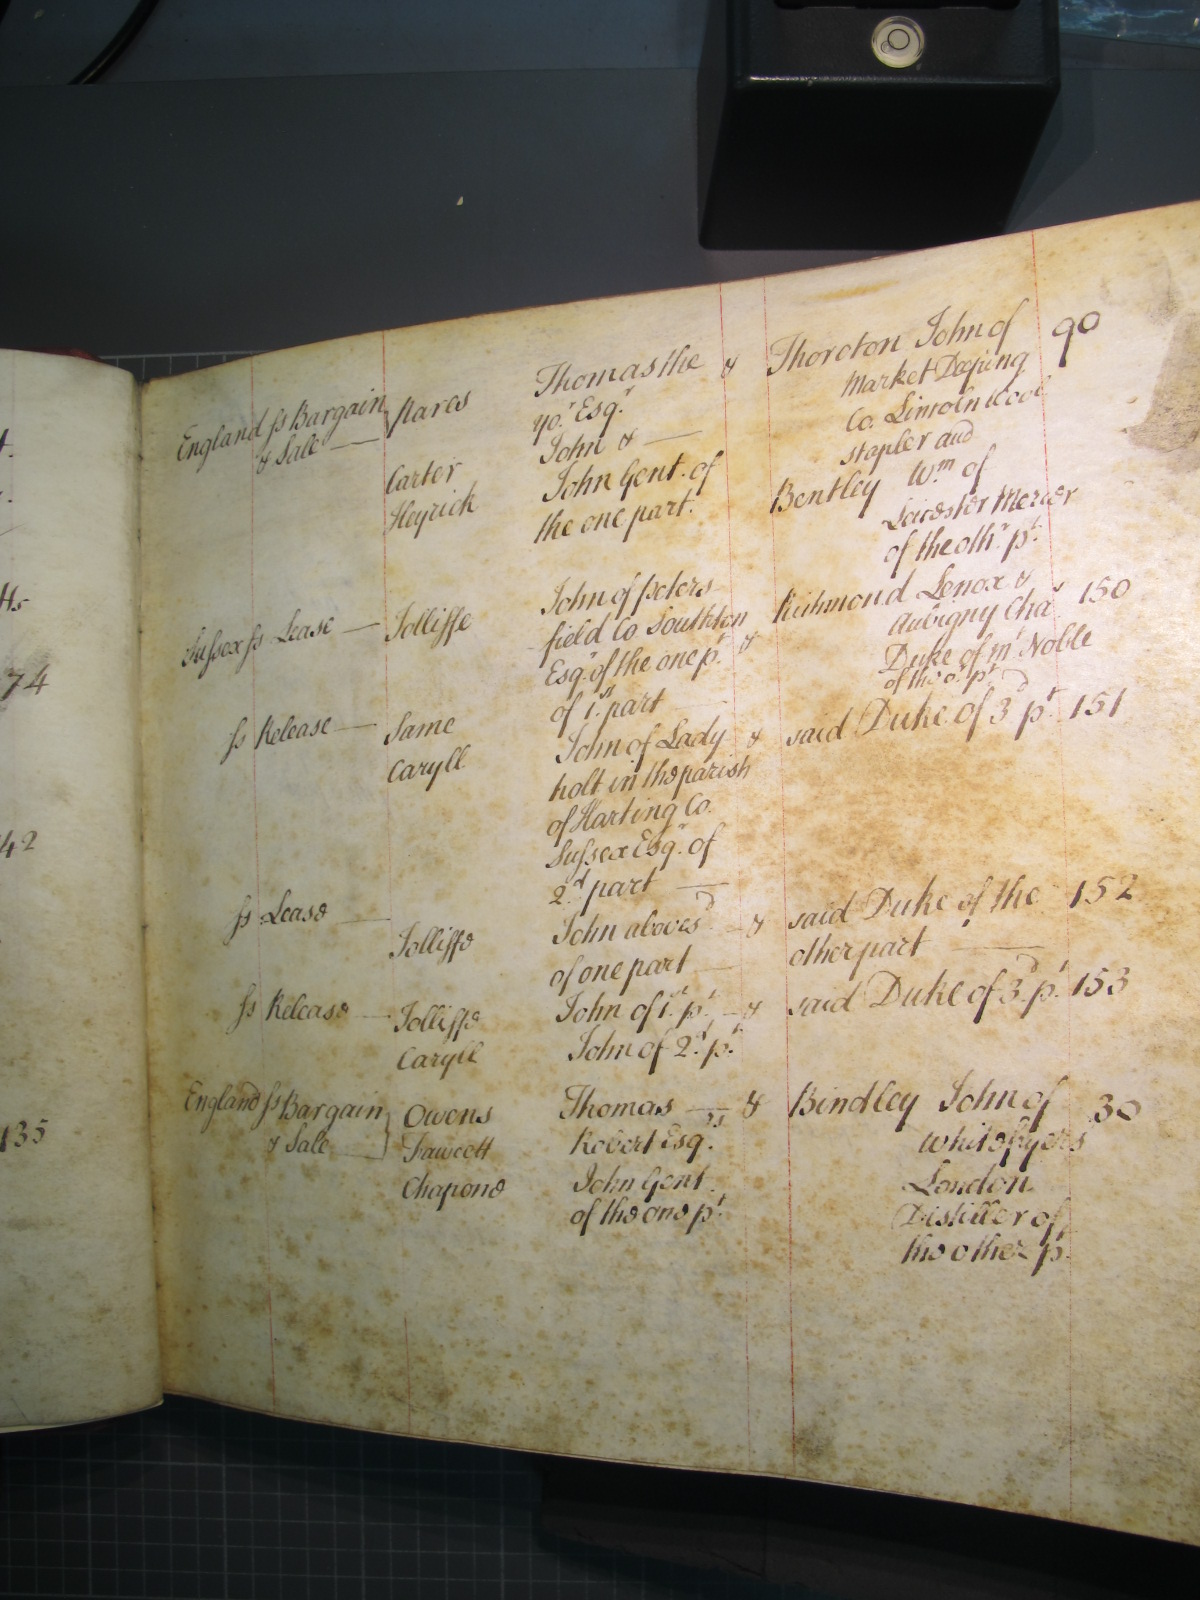 England ss Bargain fflares Thomas the & Thoroton John of 90
& Sale yo.r Esq.r Market Deeping
John & Co. Lincoln wool
Carter John Gent. of stapler and
Heyrick the one part. Bentley W.m of
Leicester Mercer
of the oth.r p.t
Sussex ss Lease Jolliffe John of Peters Richmond Lenox & 150
field Co Southton Aubigny Cha.s
Esq.r of the one p.t & Duke of m.t Noble
of the o.r p.t
ss Release Same of 1.st part & said Duke of 3.d p.t 151
Caryll John of Lady
holt in the parish
of Harting Co.
Sussex Esq.r of
2.d part
ss Lease Jolliffe John aboves.d & said Duke of the 152
of one part other part
ss Release Jolliffe John of 1.st p.t & said Duke of 3.d p.t 153
Caryll John of 2.d p.t
England ss Bargain Owens Thomas & Bindley John of 30
& Sale Fawcett Robert Esq.rs Whitefryers
Chapone John Gent. London
of the one p.t Distiller of
the other p.t
74
42
135